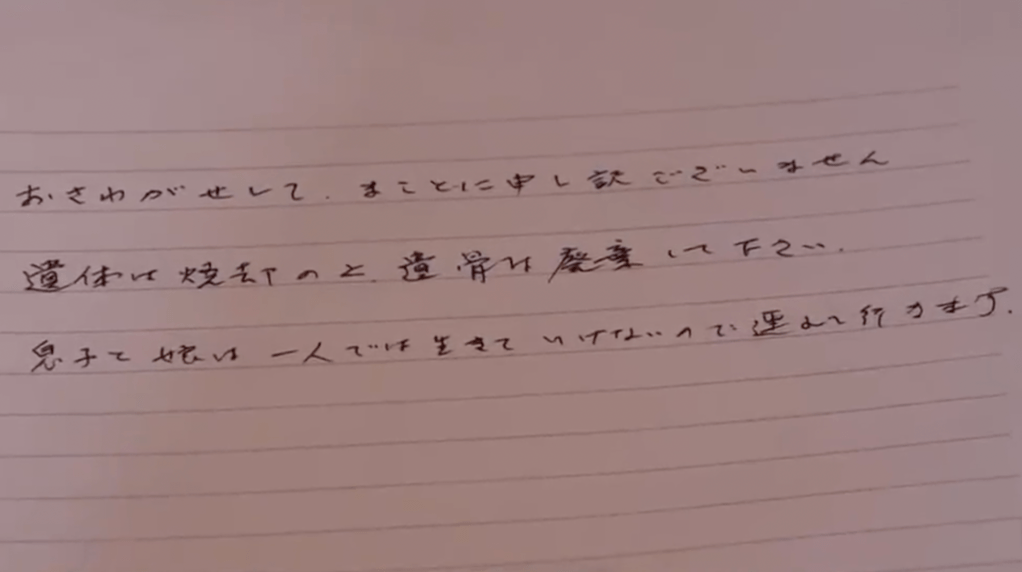 おさわがせして、まことに申し訳ございません
遺体は焼却のと、遺骨は廃棄して下さい。
息子と娘は一人では生きていけないので連れて行きます。